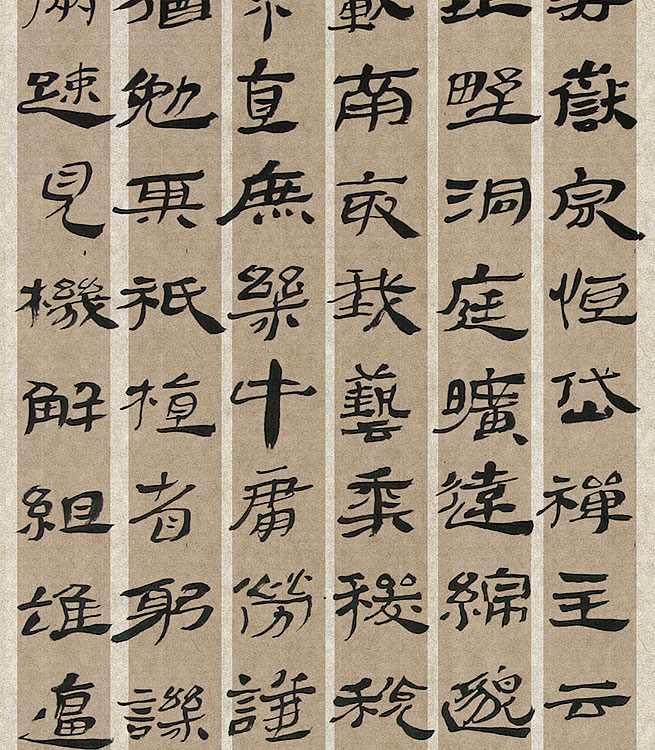 嶽宗恒岱禪主云
鉅野洞庭曠遠綿邈
載南畝我藝黍稷稅
秉直庶幾中庸勞謙
猷勉其祗植省躬譏
兩疏見機解組誰逼